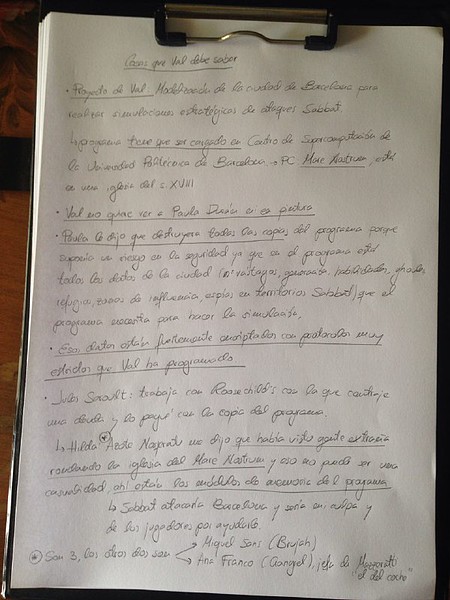 Cosas que Val debe saber
· Proyecto de Val Modelización de la ciudad de Barcelona para
realizar simulaciones estratégicas de ataques Sabbat.
↳ programa tiene que ser cargado en Centro de Supercomputación de
la Universidad Politécnica de Barcelona → PC Mare Nostrum, está
en una iglesia del s. XVIII
· Val no quiere ver a Paula Durán ni en pintura
· Paula le dijo que destruyera todas las copias del programa porque
suponía un riesgo en la seguridad ya que en el programa están
todos los datos de la ciudad (nº vástagos, generación, habilidades, ghouls,
refugios, zonas de influencia, espías en territorios Sabbat) que el
programa necesita para hacer la simulación.
· Esos datos están fuertemente encriptados con protocolos muy
estrictos que Val ha programado
· Jules : trabaja con con la que contraje
una deuda y la pagué con la copia del programa.
↳ Hilda (*) Nosferatu me dijo que había visto gente extraña
rondando la iglesia del Mare Nostrum y eso no puede ser una
casualidad, ahí están los módulos de memoria del programa
↳ Sabbat atacaría Barcelona y sería mi culpa y
de los jugadores por ayudarle.
(*) Son 3, los otros dos son Miguel Sans (Brujah)
Ana Franco (Gangrel), jefa de "el del coche"